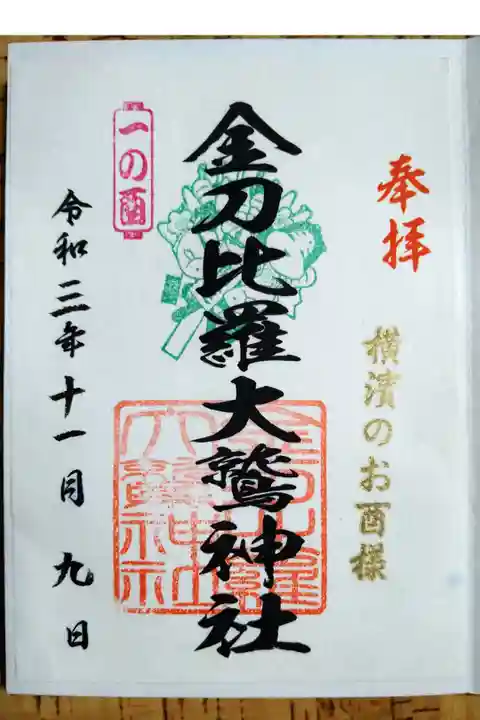 奉拝
横濱のお酉様
金刀比羅大鷲神社
一の酉
令和三年十一月九日